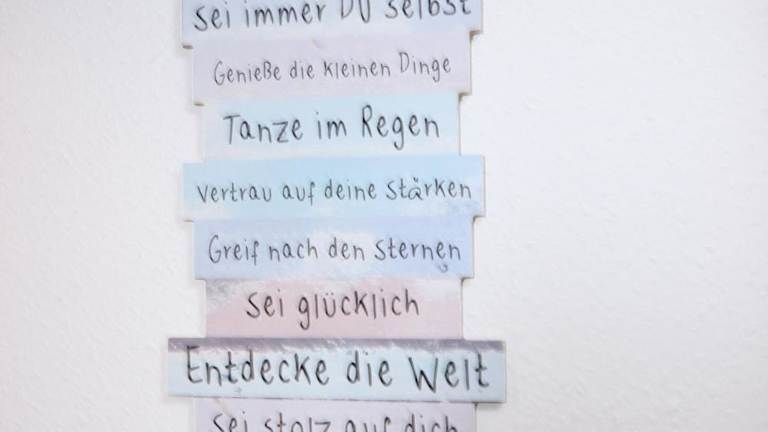 sei immer DU selbst
Genieße die kleinen Dinge
Tanze im Regen
Vertrau auf deine Stärken
Greif nach den Sternen
Sei glücklich
Entdecke die Welt
Sei stolz auf dich